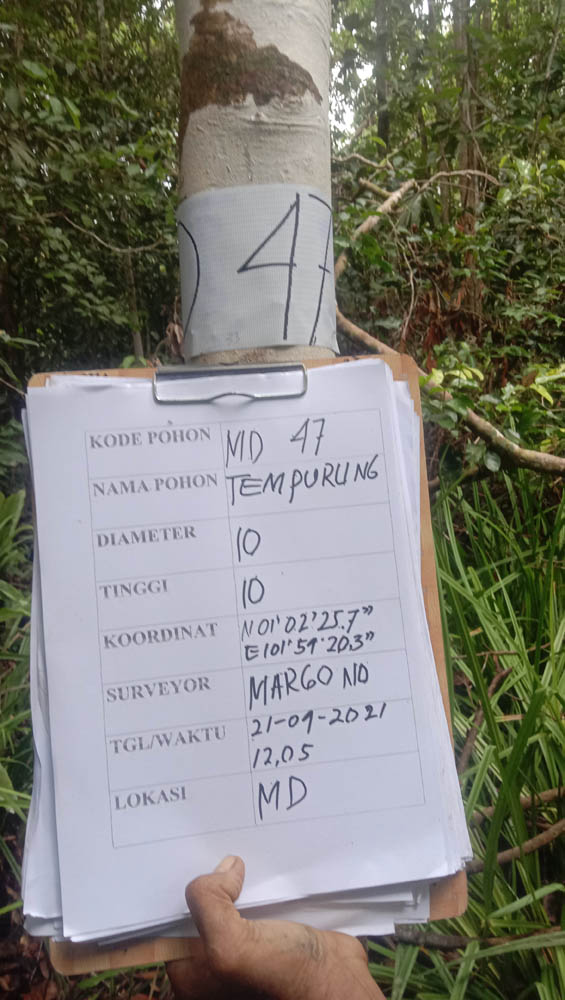 ) 47
KODE POHON MD 47
NAMA POHON TEMPURUNG
DIAMETER 10
TINGGI 10
KOORDINAT N 01'02'25.7"
E101'59'20.3"
SURVEYOR MARGONO
TGL/WAKTU 21-09-2021
12,05
LOKASI MD